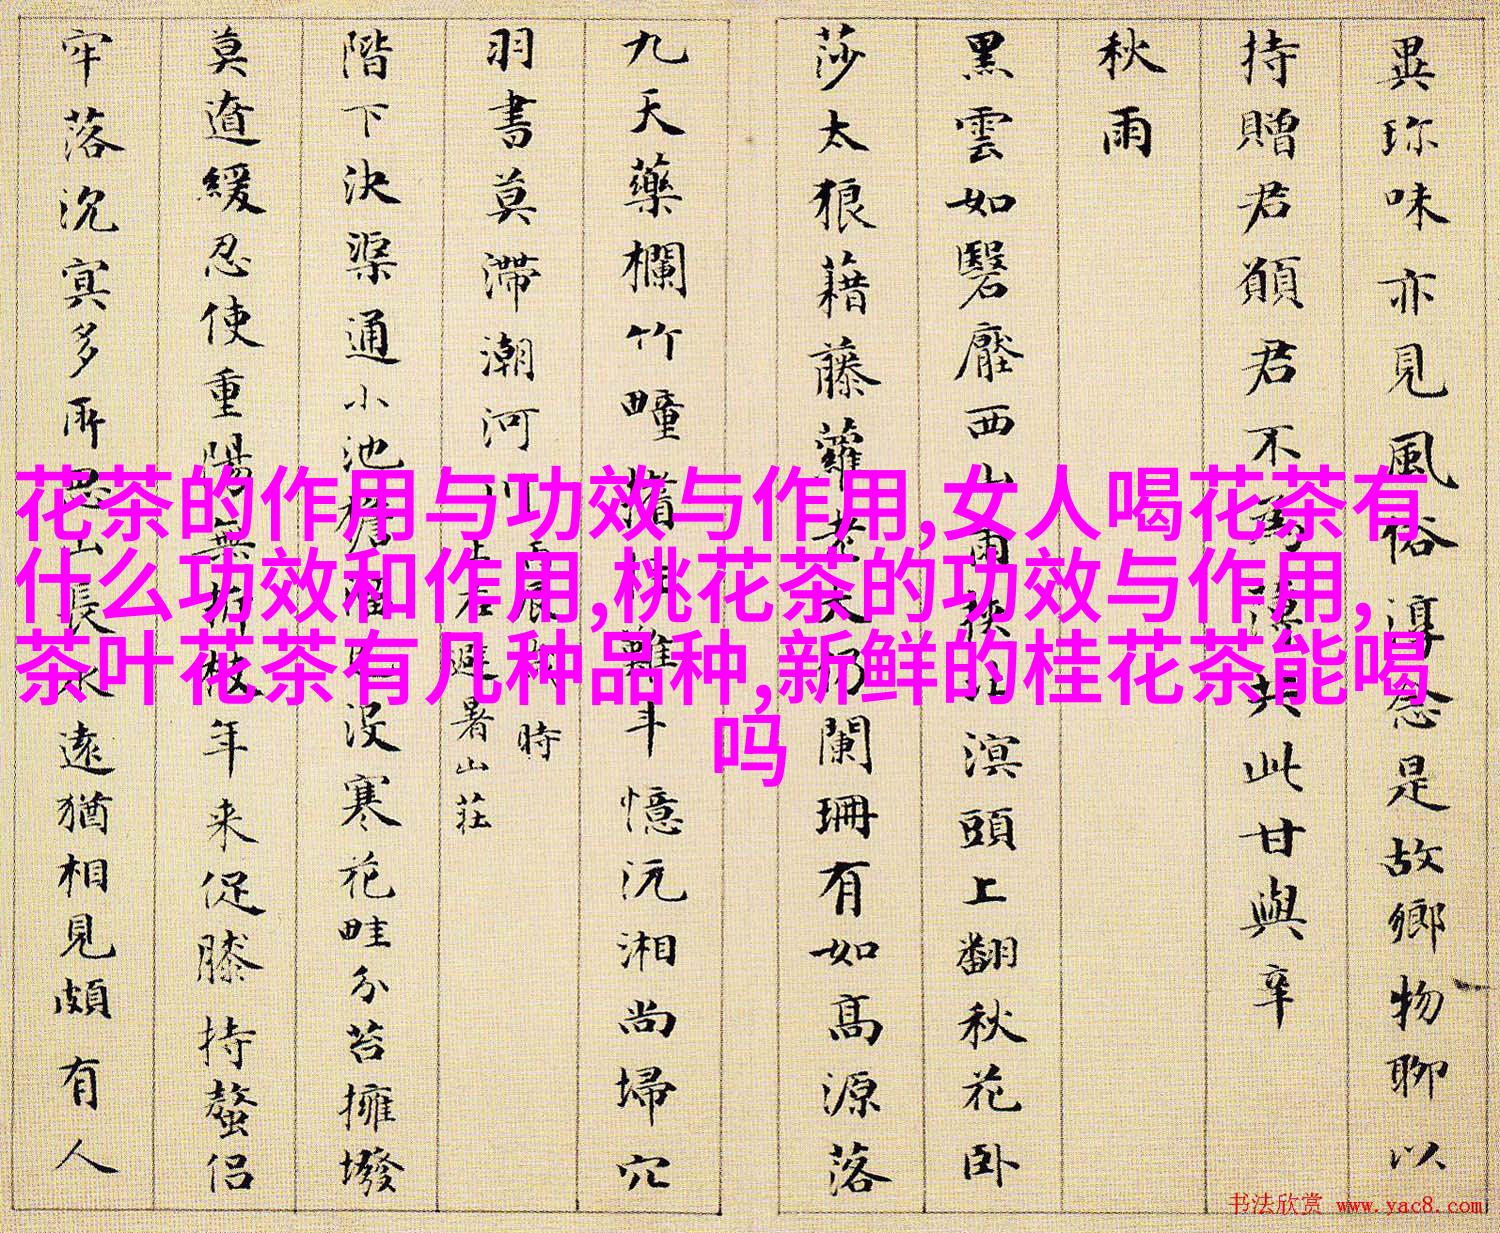 異珎味亦見風俗淳念是故鄉物聊以
持贈君願君不為漠共此甘與辛
秋雨
黑雲如鷖壓西山雨溟頭上翻秋花卧
莎太狼藉藤蘿老闌珊有如高源落
九天藥欄竹疃難斗憶沅湘尚埽穴
羽書莫滯潮河川
時
避暑山莊
階下決渠通小池沒寒花畦分苔擁墢
莫遒緩忍使重陽無年来促膝持螯侣
牢落沉冥多所思山長水遠猶相見頗有人
花茶的作用与功效与作用,女人喝花茶有
什么功效和作用,桃花茶的功效与作用,
茶叶花茶有几种品种,新鲜的桂花茶能喝
吗
书法欣赏 www.yac8.com